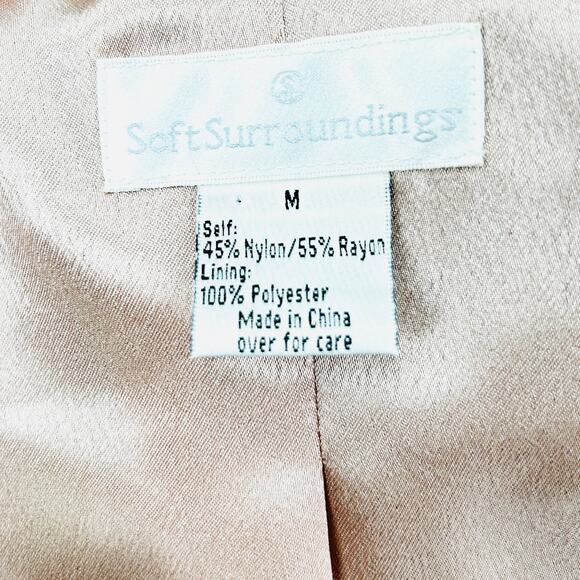 SoftSurroundings
M
Self:
45% Nylon/55% Rayon
Lining:
100% Polyester
Made in China
over for care